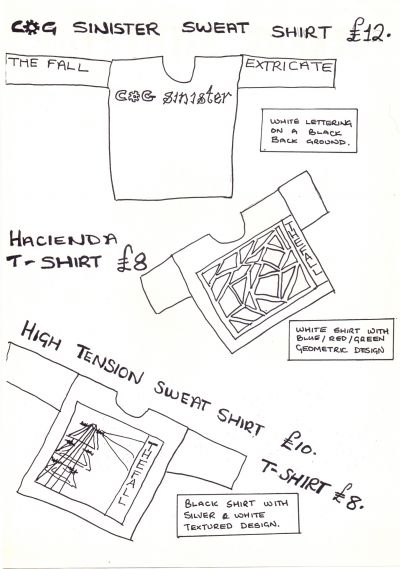 COG SINISTER SWEAT SHIRT £12.
THE FALL
EXTRICATE
COG sinister
WHITE LETTERING
ON A BLACK
BACK GROUND.
HACIENDA
T-SHIRT £8
THE FALL
WHITE SHIRT WITH
BLUE/RED/GREEN
GEOMETRIC DESIGN
HIGH TENSION SWEAT SHIRT £10.
T-SHIRT £8.
THE FALL
BLACK SHIRT WITH
SILVER & WHITE
TEXTURED DESIGN.